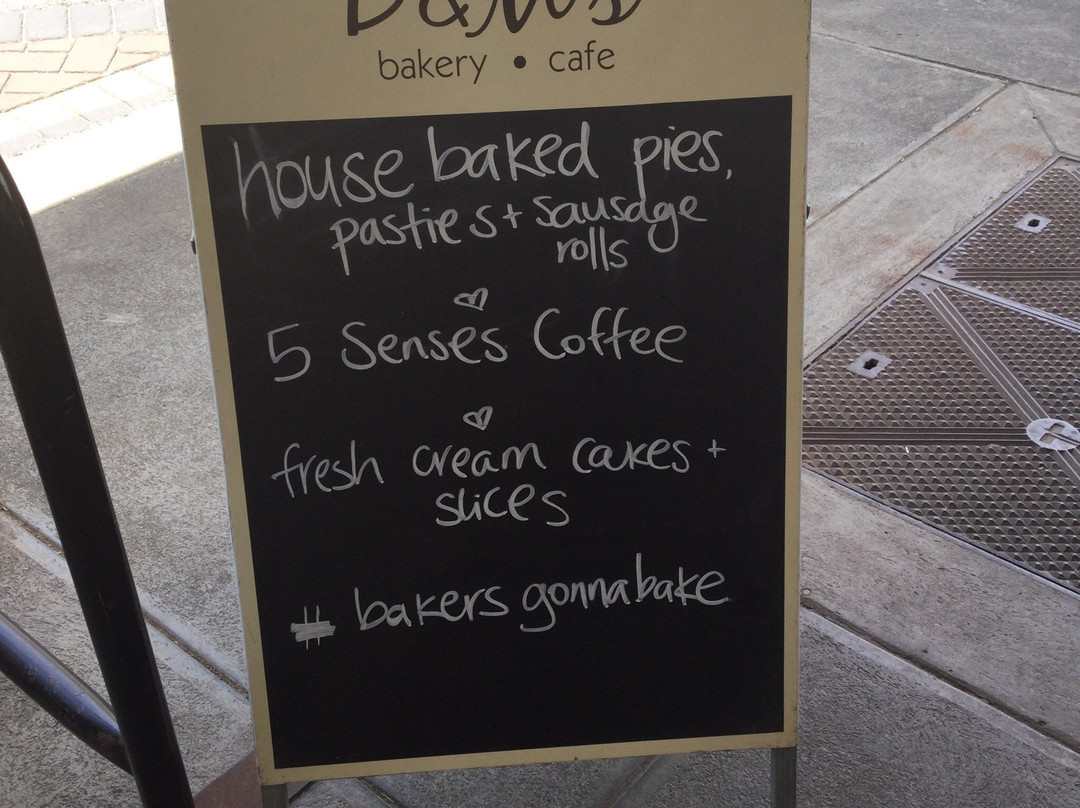 bakery • cafe
house baked pies,
pasties + sausage
rolls
5 Senses Coffee
fresh cream cakes +
slices
# bakers gonna bake